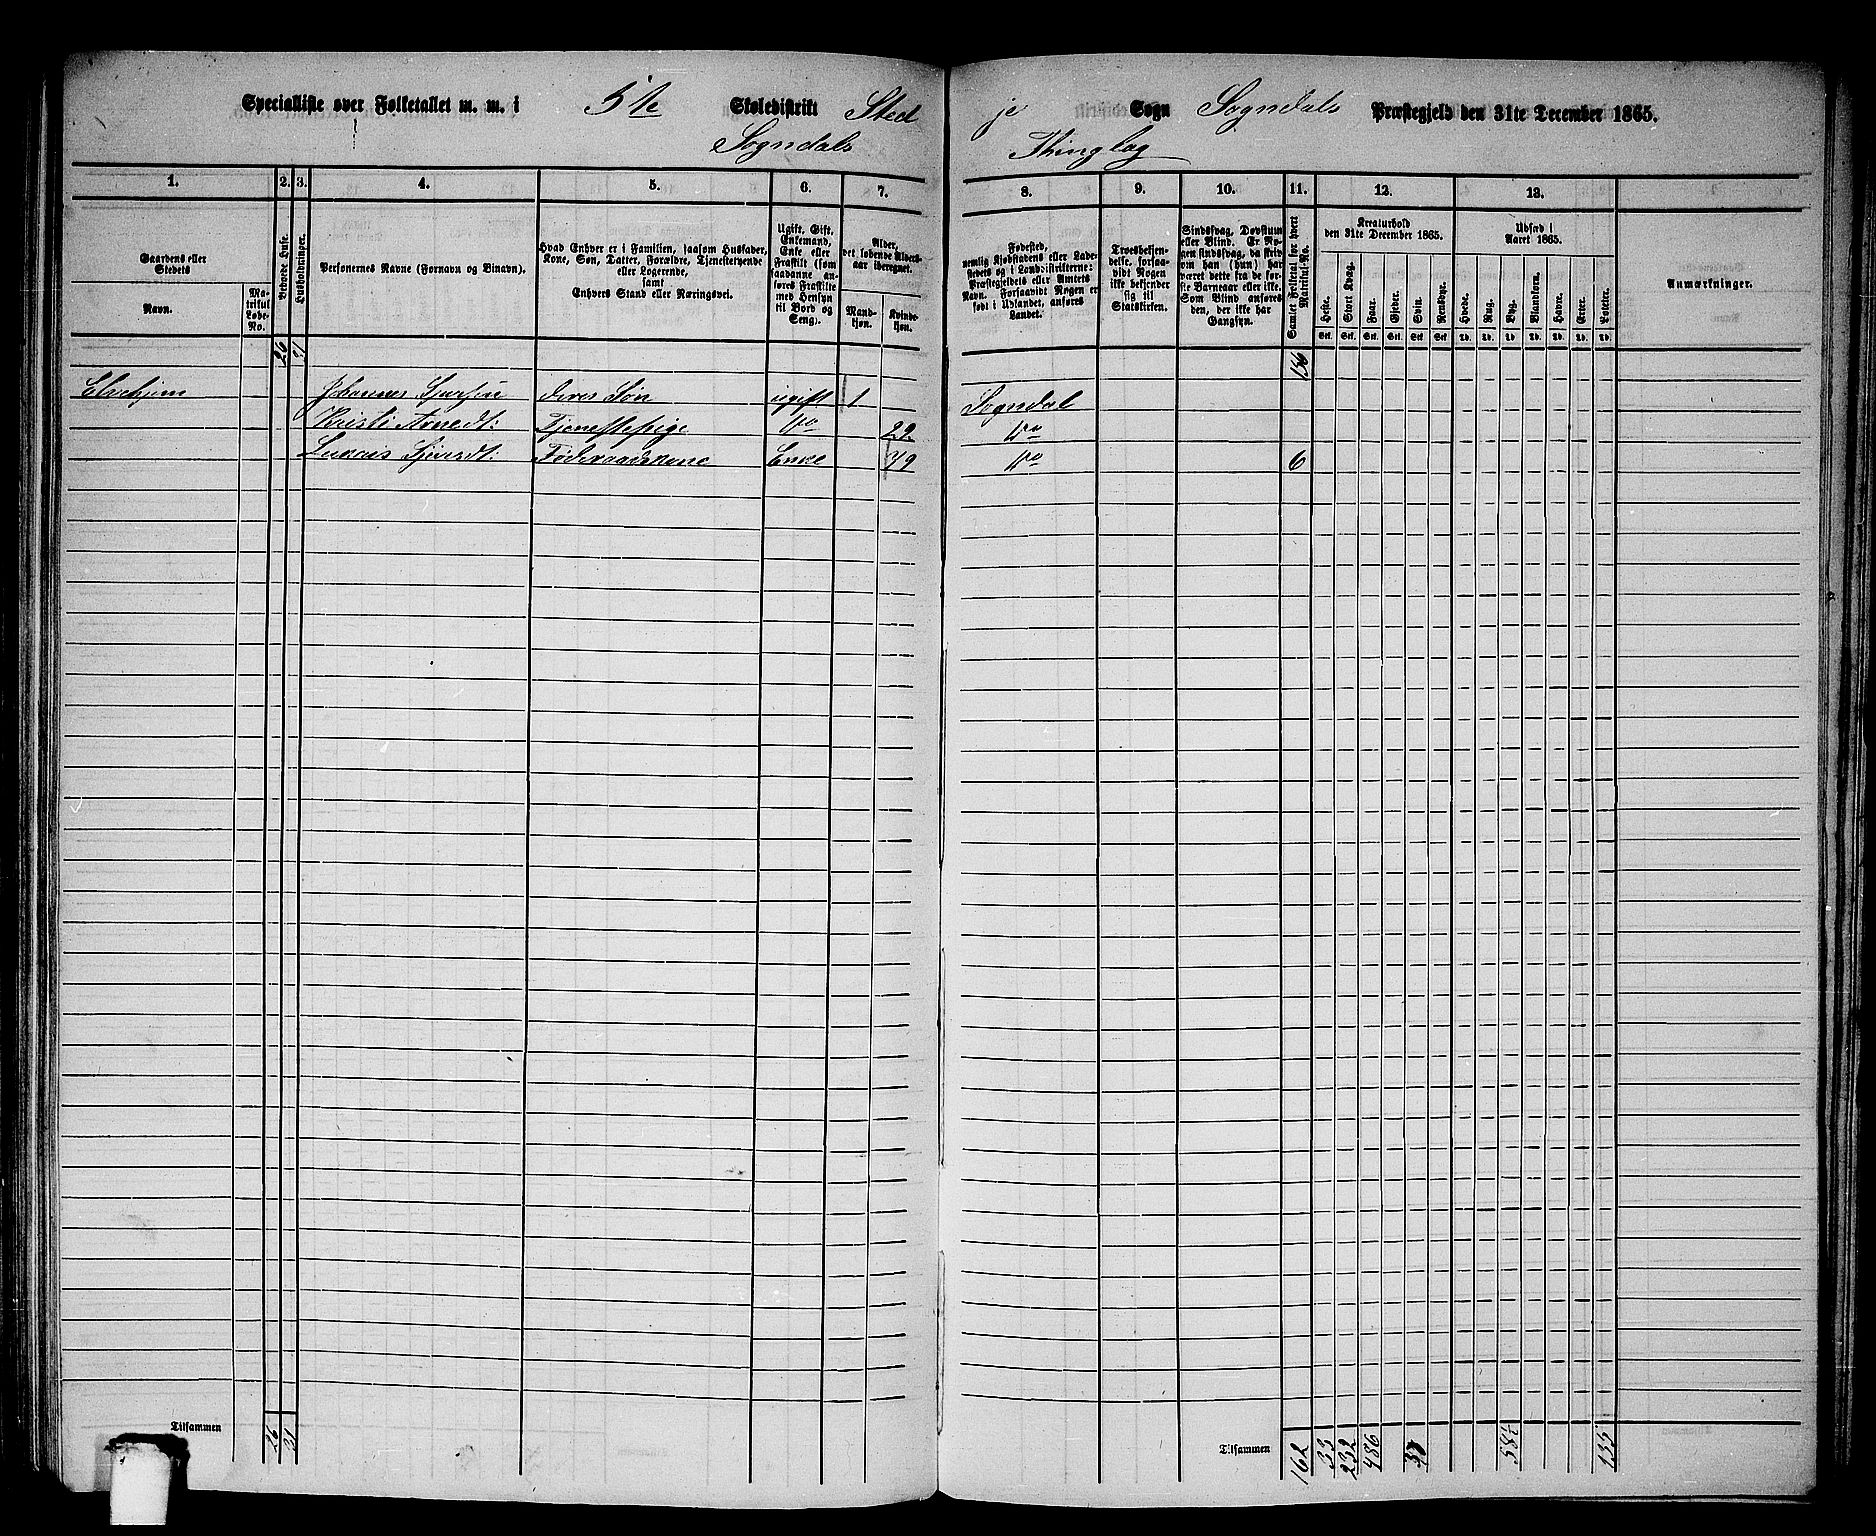 Specialliste over Folketallet m. m. i 5te Skoledistrikt Stedje Sogn Sogndals Præstegjeld den 31te December 1865.
Sogndals Thinglag
1. 2. 3. 4. 5. 6. 7. 8. 9. 10. 11. 12. 13.
Gaardens eller Stedets
Navn.
Matrikul Løbe-No.
Beboede Huse.
Husholdninger.
Personernes Navne (Fornavn og Binavn).
Hvad Enhver er i Familien, saasom Husfader, Kone, Søn, Datter, Forældre, Tjenestetyende eller Logerende, samt Enhvers Stand eller Næringsvei.
Ugift, Gift, Enkemand, Enke eller Fraskilt (som saadanne anføres Fraskilte med Hensyn til Bord og Seng).
Alder, det løbende Aldersaar iberegnet.
Mandkjøn.
Kvindekjøn.
Fødested, nemlig Kjøbstadens eller Ladestedets og i Landdistrikterne: Præstegjeldets eller Amtets Navn. Forsaavidt Nogen er født i Udlandet, anføres Landet.
Troesbekjendelse, forsaavidt Nogen ikke bekjender sig til Statskirken.
Sindssvag, Døvstum eller Blind. Er Nogen sindssvag, da skrives om han (hun) har været dette fra de første Barneaar eller ikke. Som Blind anføres den, der ikke har Gangsyn.
Samlet Folketal for hvert Matrikul-No.
Kreaturhold den 31te December 1865.
Heste. Stort Kvæg. Faar. Gjeder. Svin. Rensdyr.
Udsæd i Aaret 1865.
Hvede. Rug. Byg. Blandkorn. Havre. Erter. Poteter.
Anmærkninger.
Stk. Stk. Stk. Stk. Stk. Stk. Td. Td. Td. Td. Td. Td. Td.
26 31 156
Johannes deres Søn ugift 1 Sogndal
Kristi Arnedt: Tjenestepige do 29 do
Sjursdt: Føderaadskone Enke 79 do 6
Tilsammen 26 31
Tilsammen 162 33 232 486 135